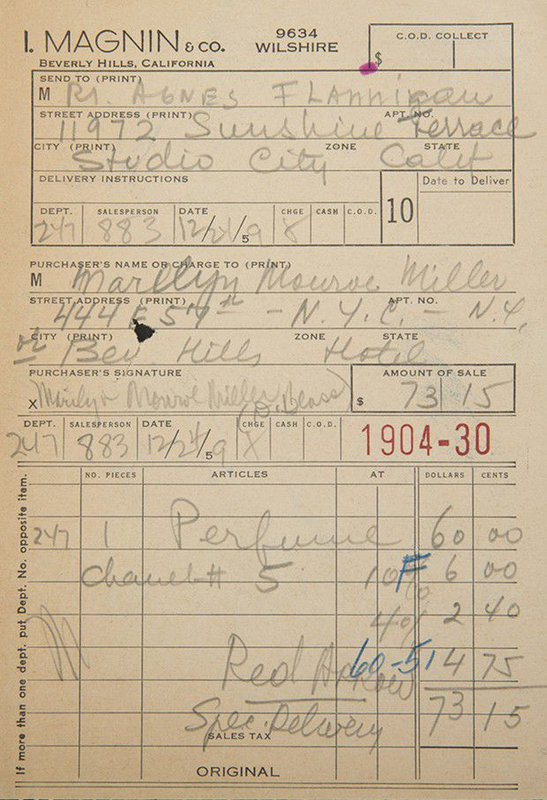 I. MAGNIN & CO. 9634 WILSHIRE
BEVERLY HILLS, CALIFORNIA
C.O.D. COLLECT
$
SEND TO (PRINT)
M R. AGNES FLANNIGAN
STREET ADDRESS (PRINT) APT. NO.
11972 Sunshine Terrace
CITY (PRINT) ZONE STATE
Studio City Calif
DELIVERY INSTRUCTIONS
10
Date to Deliver
DEPT. SALESPERSON DATE CHGE CASH C.O.D.
247 883 12/21/59 X
PURCHASER'S NAME OR CHARGE TO (PRINT)
M Marilyn Monroe Miller
STREET ADDRESS (PRINT) APT. NO.
444 E 57th - N.Y.C. - N.Y.
CITY (PRINT) ZONE STATE
Bev Hills Hotel
PURCHASER'S SIGNATURE
X Marilyn Monroe Miller
AMOUNT OF SALE
$ 73 15
DEPT. SALESPERSON DATE CHGE CASH C.O.D.
247 883 12/21/59 X
1904-30
NO. PIECES ARTICLES AT DOLLARS CENTS
247 1 Perfume 60 00
Chanel # 5 10% F 6 00
4% 2 40
Red Arrow 60-51 4 75
Spec. Delivery 73 15
SALES TAX
ORIGINAL
If more than one dept. put Dept. No. opposite item.